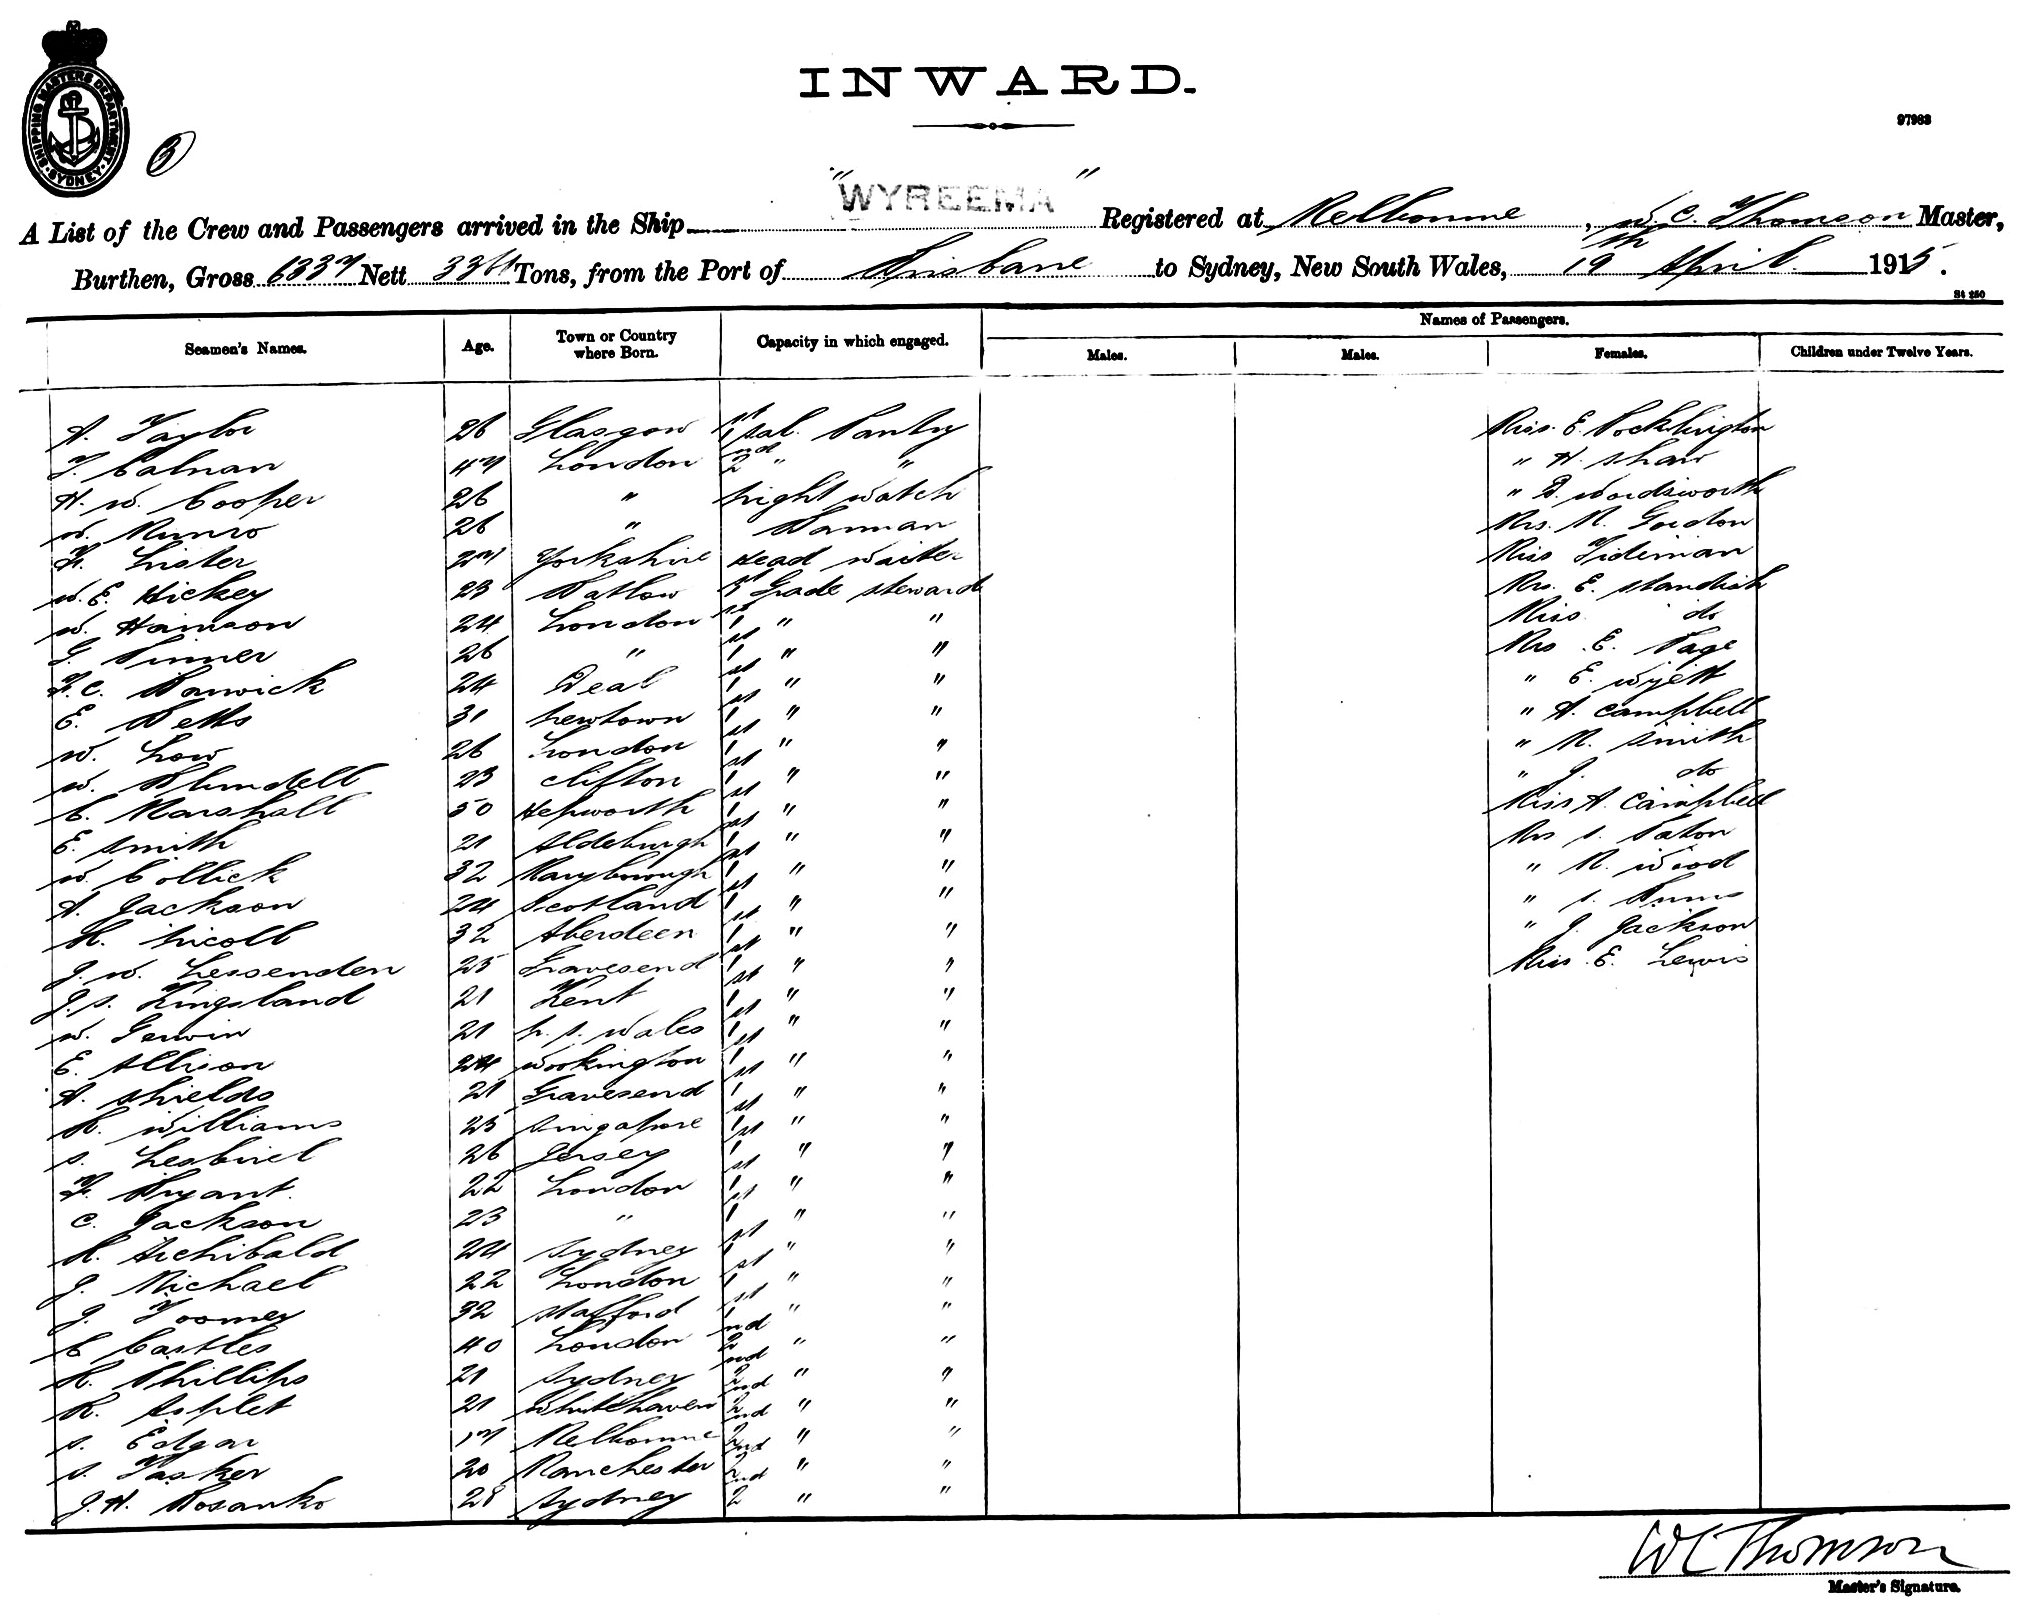 SHIPPING MASTERS DEPARTMENT · SYDNEY ·
3
INWARD.
97983
A List of the Crew and Passengers arrived in the Ship "WYREEMA" Registered at Melbourne, W. C. Thomson Master,
Burthen, Gross 6337 Nett 3361 Tons, from the Port of Brisbane to Sydney, New South Wales, 19th April 1915.
St 250
Names of Passengers.
Seamen's Names. Age. Town or Country where Born. Capacity in which engaged. Males. Males. Females. Children under Twelve Years.
A. Taylor 26 Glasgow 1st Sal. Pantry Miss. E. Pocklington
T. Calnan 47 London 2nd " " " H. Shaw
H. W. Cooper 26 " Night Watch " D. Wordsworth
W. Munro 26 " Barman Mrs. M. Gordon
F. Lister 27 Yorkshire Head Waiter Miss Tideman
W. E. Hickey 23 Batlow 1st Grade Steward Mrs. E. Standish
W. Hamson 24 London 1st " " Miss do
G. Pinner 26 " 1st " " Mrs. E. Page
F. C. Barwick 24 Deal 1st " " " E. Wyett
E. Betts 31 Newtown 1st " " " A. Campbell
W. Low 26 London 1st " " " M. Smith
W. Blundell 23 Clifton 1st " " " J. do
C. Marshall 50 Hepworth 1st " " Miss A. Campbell
E. Smith 21 Aldeburgh 1st " " Mrs S. Paton
W. Collick 32 Maryborough 1st " " " M. Wood
A. Jackson 24 Scotland 1st " " " S.
R. Nicoll 32 Aberdeen 1st " " " J. Jackson
J. W. Lessenden 25 Gravesend 1st " " Miss. E. Lewis
J. S. Kingsland 21 Kent 1st " "
W. Gerwin 21 N. S. Wales 1st " "
E. Allison 24 Workington 1st " "
A. Shields 21 Gravesend 1st " "
R. Williams 25 Singapore 1st " "
S. Lesbirel 26 Jersey 1st " "
F. Bryant. 22 London 1st " "
C. Jackson 23 " 1st " "
R. Archibald 24 Sydney 1st " "
J. Michael 22 London 1st " "
J. Toomey 32 Stafford 1st " "
C Castles 40 London 2nd " "
R. Phillips 21 Sydney 2nd " "
R. Asplet 21 Whitehaven 2nd " "
S. Edgar 17 Melbourne 2nd " "
S. Tasker 20 Manchester 2nd " "
J. H. Rosanko 28 Sydney 2nd " "
WC Thomson
Master's Signature.